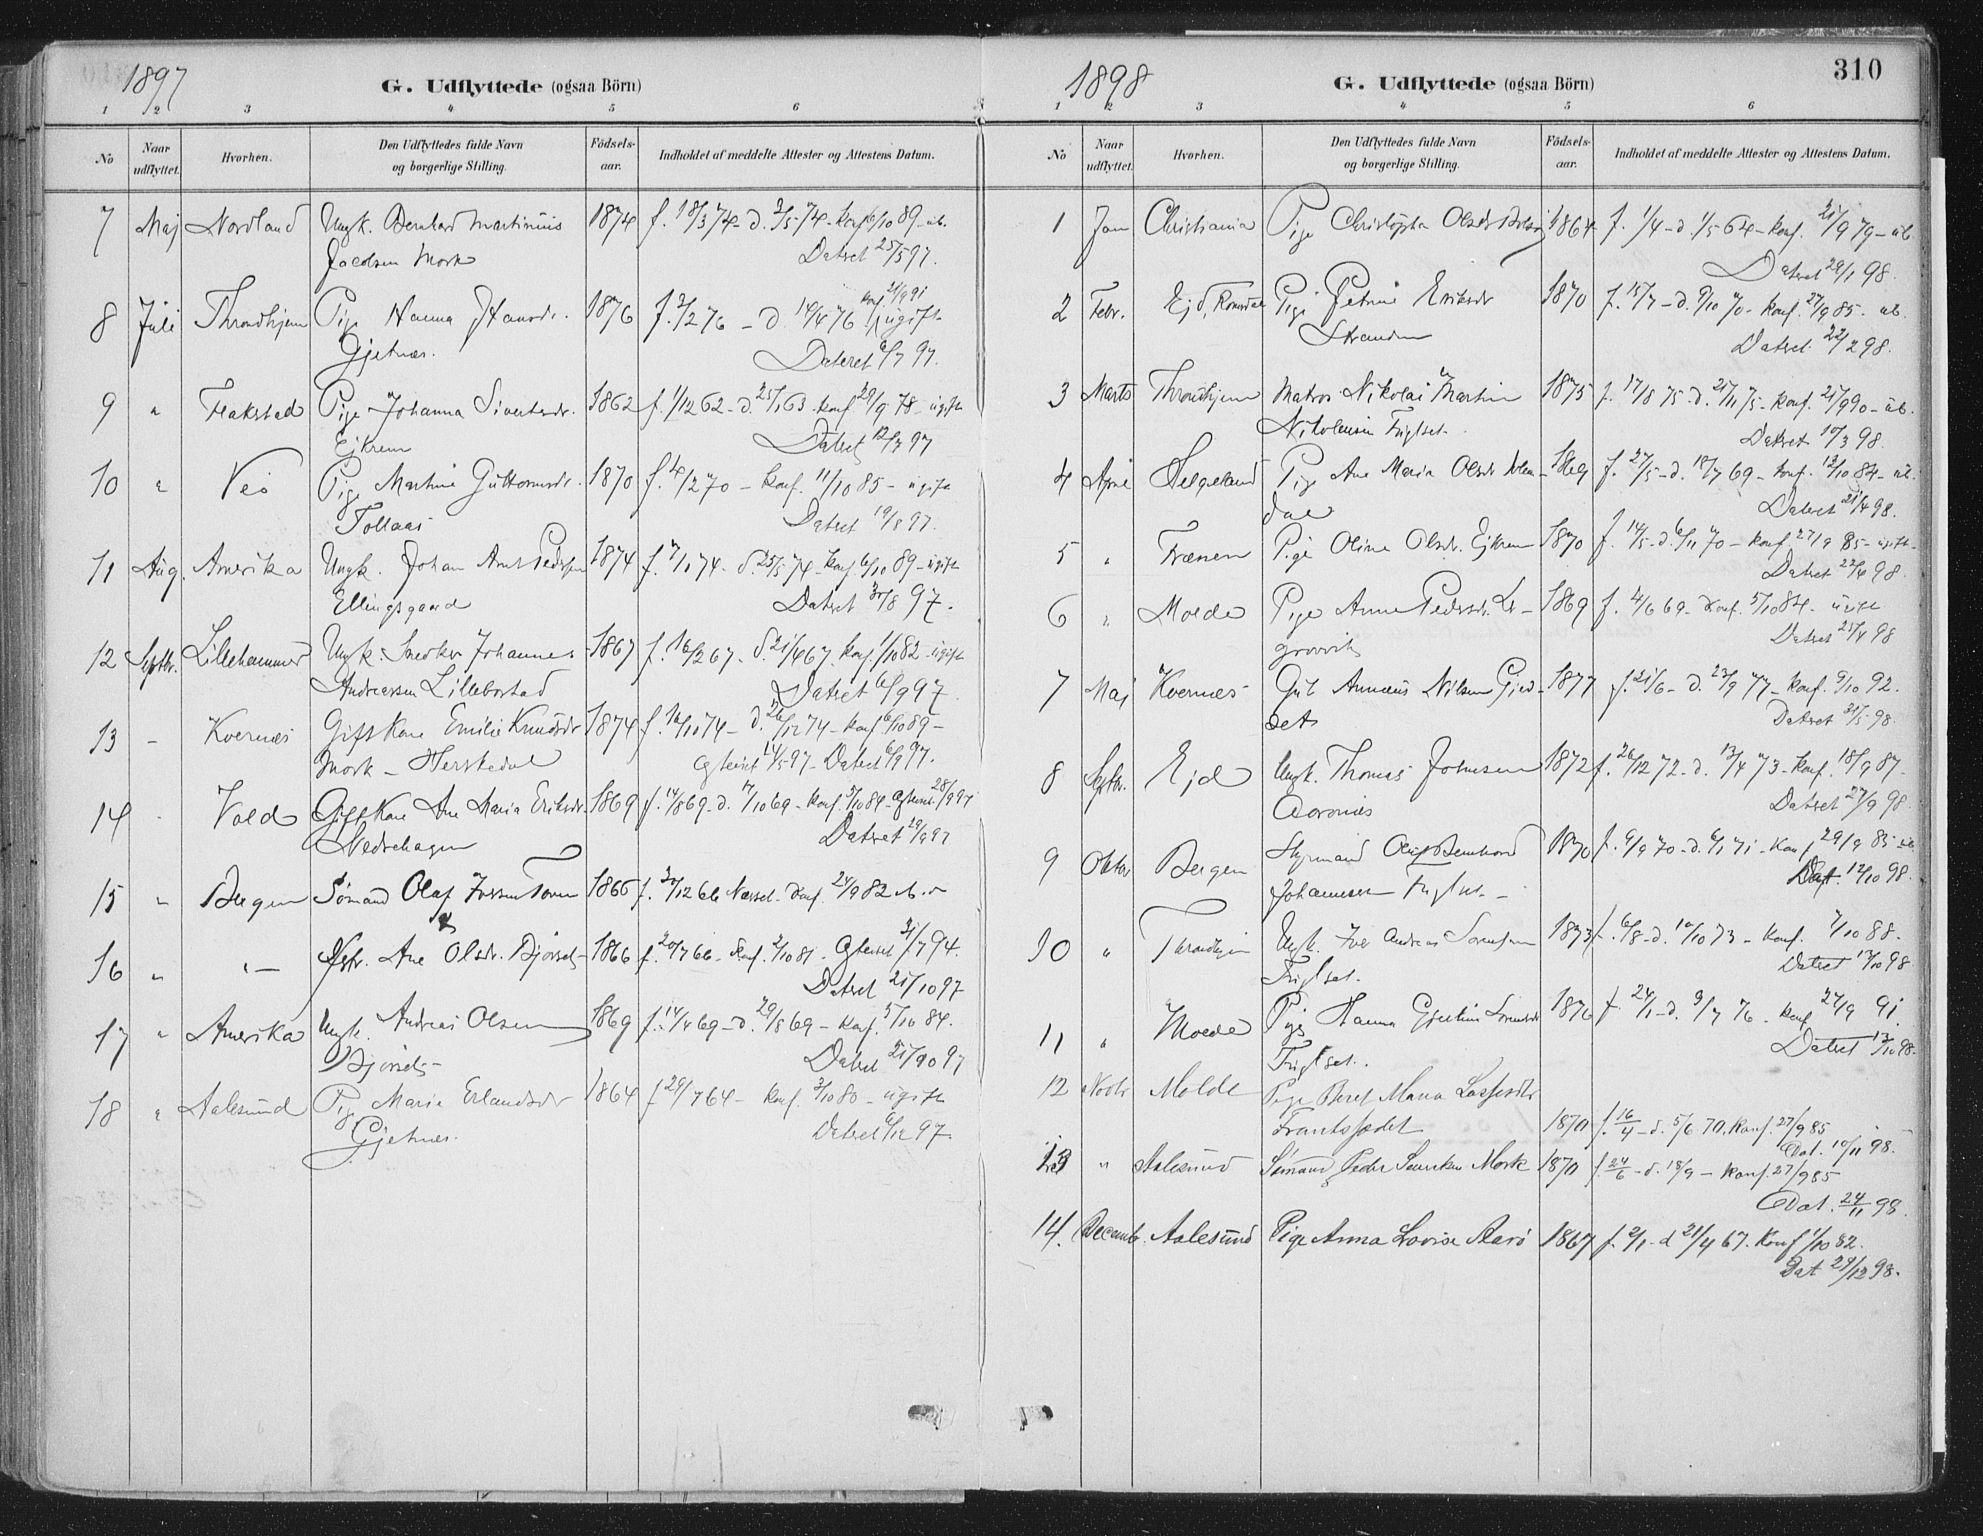 1897
G. Udflyttede (ogsaa Börn)
1 2 3 4 5 6
No Naar udflyttet. Hvorhen. Den Udflyttedes fulde Navn og borgerlige Stilling. Födsels-aar. Indholdet af meddelte Attester og Attestens Datum.
7 Maj Nordland Ungk. Bernhard Martinius 1874 f. 18/3 74 - d. 3/5 74 - Konf. 6/10 89 - ub.
Jacobsen Mork Datret 25/5 97.
8 Juli Throndhjem Pige Hanna Hansdr. 1876 f. 2/2 76 - d. 14/4 76 Konf. 21/9 91 ugift
Gjetnæs. Dateret 6/7 97.
9 " Flakstad Pige Johanna Sivertsdr. 1862 f. 1/12 62 - d. 25/1 63 - Konf. 29/9 78 - ugift
Ejkrem Datret 12/7 97
10 " Veö Pige Martine Guttormsdr. 1870 f. 4/2 70 - Konf. 11/10 85 - ugift
Tollaas Datret 19/8 97.
11 Aug. Amerika Ungk. Johan Arnt Pedersen 1874 f. 7/1 74 - d. 25/5 74 - Konf. 6/10 89 - ugift
Ellingsgaard Datret 97.
12 Septbr. Lillehammer Ungk. Snedker Johannes 1867 f. 16/2 67 - d. 21/4 67. Konf. 1/10 82 - ugift
Andreassen Lillebostad Datret 6/9 97.
13 - Kvernæs Gift Kone Emilie Knudsdr 1874 f. 16/10 74 - d. 26/12 74 - Konf. 6/10 89 -
Mork - Herskedal Gteviet 14/5 97 - Datret 6/9 97.
14 - Vold Gift Kone Ane Maria Eriksdr. 1869 f. 14/8 69 - d. 17/10 69 - Konf. 5/10 84 - Gteviet 28/9 97
Nedrehagen Datret 29/9 97
15 " Bergen Sømand Olaf Iversen 1866 f. 12 66 Konf. 24/9 82
16 " " - Ane Olsdr. Bjørsets 1866 f. 20/7 66 - Konf. 2/10 81 - Gteviet 21/7 94.
Datret 21/10 97
17 " Amerika Ungk. Andreas Olsen 1869 f. 14/4 69 - d. 29/8 69 - Konf. 5/10 84.
Bjørsets - Datret 97
18 " Aalesund Pige Marie Erlandsdr 1864 f 29/7 64 - Konf. 3/10 80 - ugift
Gjetnæs. Datret 6/12 97.
1898
310
G. Udflyttede (ogsaa Börn)
1 2 3 4 5 6
No Naar udflyttet. Hvorhen. Den Udflyttedes fulde Navn og borgerlige Stilling. Födsels-aar. Indholdet af meddelte Attester og Attestens Datum.
1 Jan Christiania Pige Christopha Olsdr 1864 f. 1/4 - d. 1/5 64 - Konf. 21/9 79 - ub.
Datret 29/1 98.
2 Febr. Ejd, Romsdal Pige Petrine Eriksdr 1870 f. 15/7 - d. 9/10 70 - Konf. 27/9 85 - ub.
Stranden Datret 22/2 98.
3 Marts Throndhjem Matros Nikolai Martin 1875 f. 17/8 75 - d. 21/11 75 - Konf. 21/9 90 - ub.
Nikolaisen Fuglset. Datret 10/3 98.
4 April Helgeland Pige Ane Maria Olsdr 1869 f. 27/5 - d. 18/7 69 - Konf. 12/10 84 - ub.
dal Datret 21/4 98.
5 " Frænen Pige Oline Olsdr. Ejkrem 1870 f. 14/5 - d. 6/11 70 - Konf. 27/9 85 - ugift -
Datret 22/4 98.
6 " Molde Pige Anne Pedersdr. 1869 f. 4/6 69 - Konf. 5/10 84 - ugift
grovvik Datret 25/4 98
7 Maj Kvernæs - Gut Annæus Nilsen Gjed- 1877 f. 21/6 - d. 23/9 77 - Konf. 9/10 92.
sets Datret 21/5 98.
8 Septbr. Ejd Ungk. Thomas Johnsen 1872 f. 26/12 72 - d. 13/4 73 - Konf. 18/9 87 -
Aarønæs Datret 27/9 98.
9 Oktbr Bergen Styrmand Oluf Bernhard 1870 f. 6/9 70 - d. 6/1 71 - Konf 29/9 85 - ub.
Johannesen Fuglset - Dat. 12/10 98.
10 " Throndhjem Ungk. Iver Andreas Sørensen 1873 f. 6/8 - d. 10 73 - Konf. 7/10 88 -
Fuglset. Datret 13/10 98.
11 " Molde Pige Hanna Gjertine Sørensdr 1876 f. 24/1 - d. 9/7 76 - Konf 27/9 91.
Fuglset. Datret 13/10 98.
12 Novbr Molde Pige Beret Maria Lassesdtr
Frantssædet 1870 f. 16/4 - d. 5/6 70. Konf. 27/9 85
Dat. 10/11 98.
13 " Aalesund Sømand Peder Mork 1870 f. 24/6 - d. 18/9 - Konf. 27/9 85
Dat. 24/11 98.
14. Decemb. Aalesund Pige Anna Lovise Aarø 1867 f. 2/1 - d 21/4 67. Konf 1/10 82.
Dat 29/12 98.